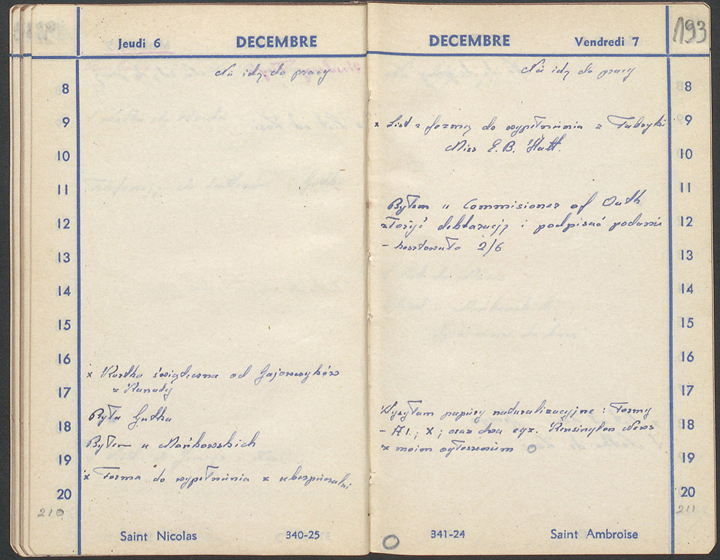 Jeudi 6 DECEMBRE
8
9
10
11
12
13
14
15
16
17
18
19
20
Nie idę do pracy
x Kartka świąteczna od Gajewskych
z Kanady
Była Gutka
Byłem u Mańkowskich
x Forma do wypełnienia z ubezpieczalni
210
Saint Nicolas 340-25
DECEMBRE Vendredi 7
193
8
9
10
11
12
13
14
15
16
17
18
19
20
Nie idę do pracy
x List z formą do wypełnienia z Fabryki
Miss E.B. Hatt.
Byłem u Commisioner of Outh
złożyć deklarację i podpisać podanie
- kosztowało 2/6
Wysyłam papiery naturalizacyjne: Formy
- A1.; X; oraz dwa egz. Kensington News
z moim ogłoszeniem
211
341-24 Saint Ambroise